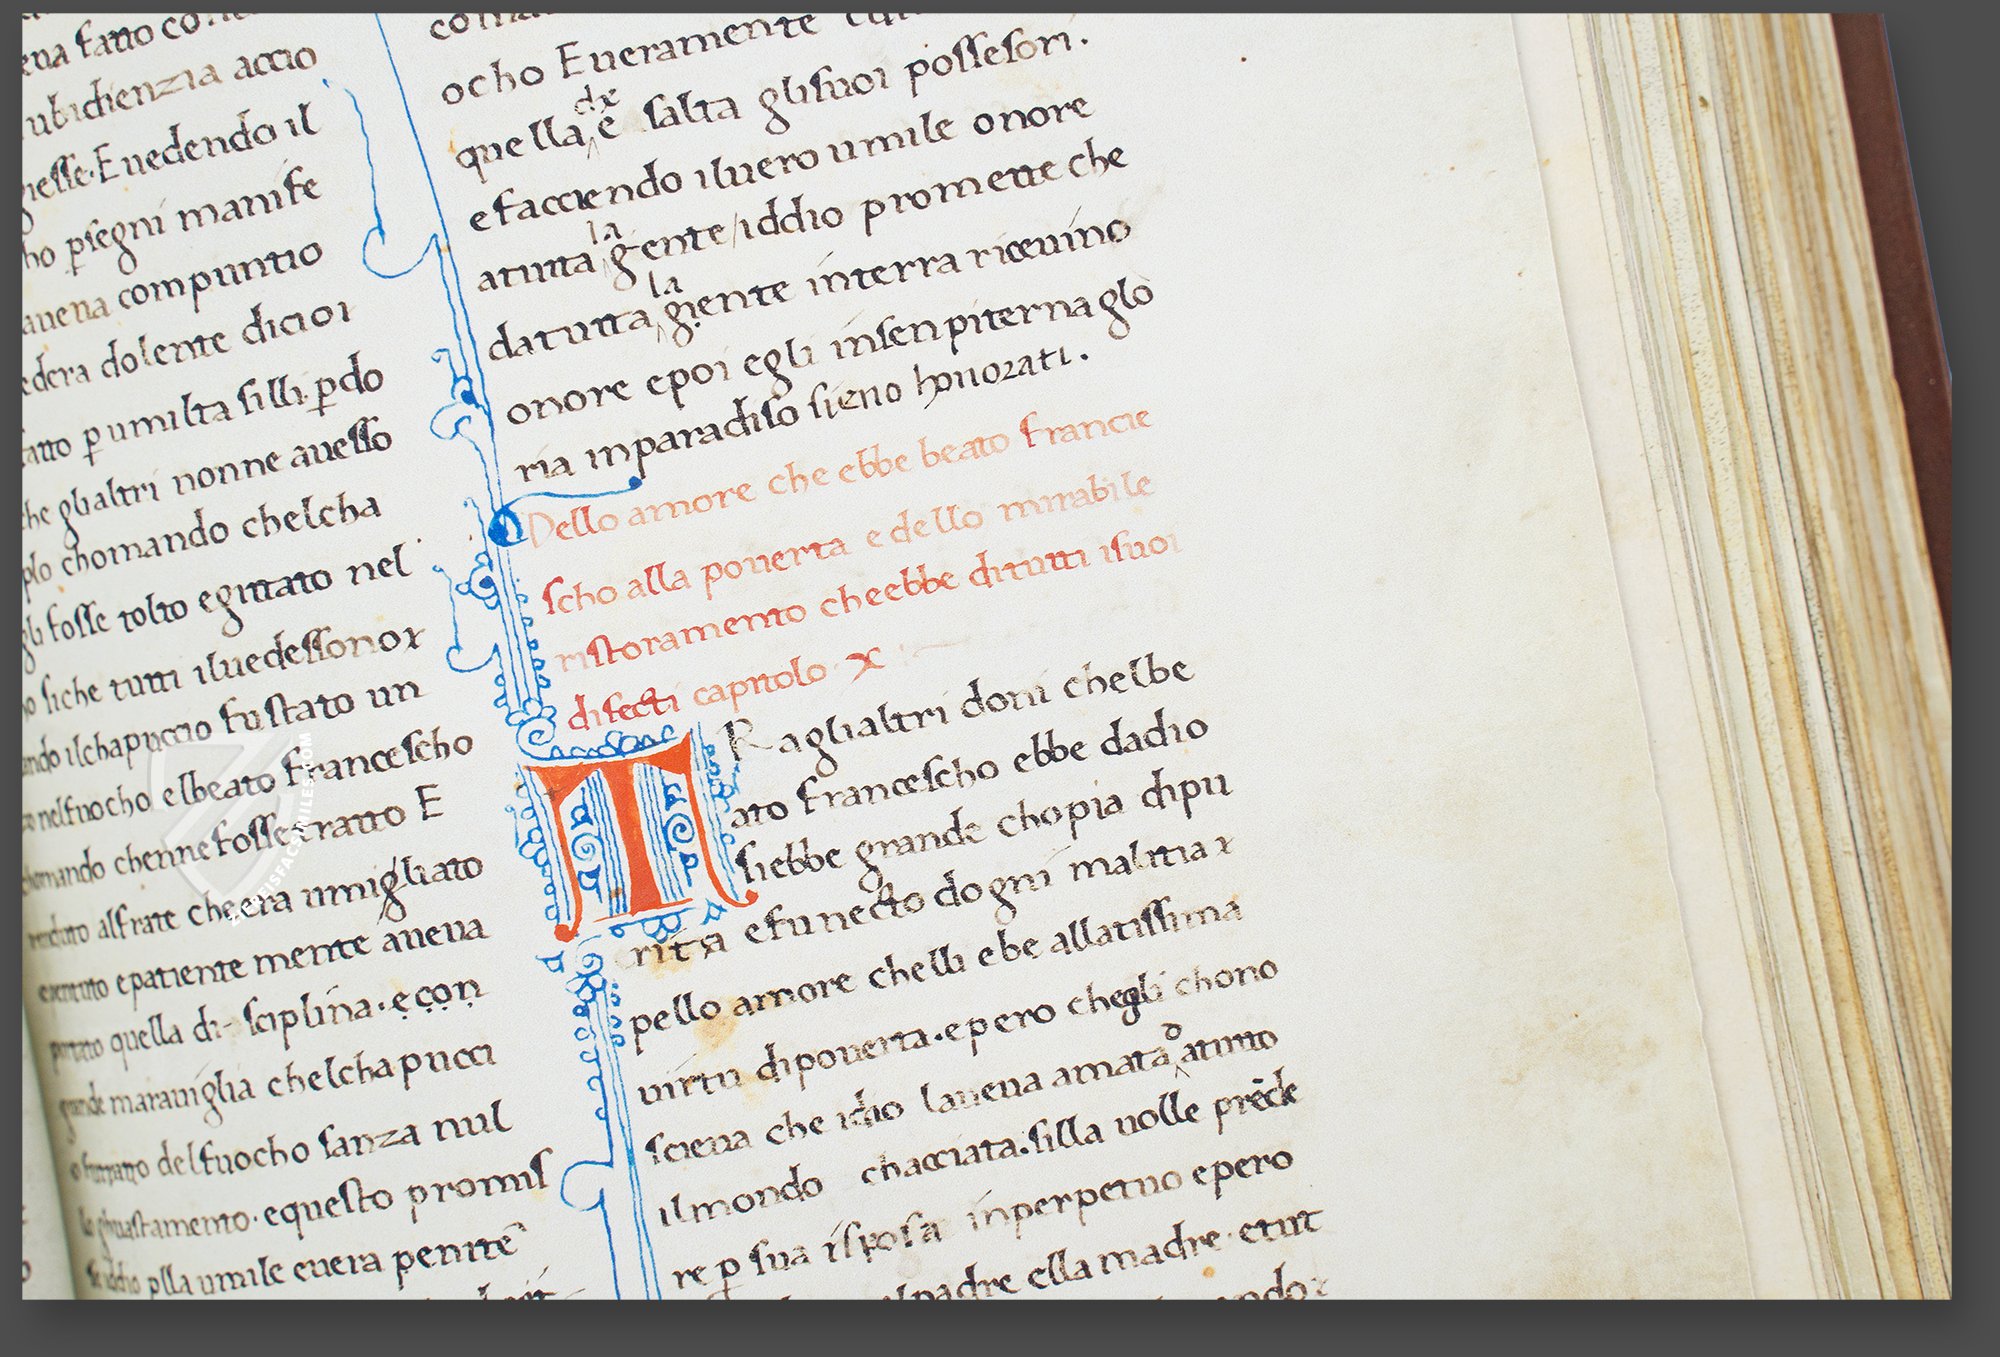 ena fatto co
ubidienzia accio
giesse. E uedendo il
ho ꝑsegni manife
aueua compuntio
edera dolente dicioı
fatto ꝑ umilta silli ꝑdo
che glialtri nonne auesso
plo chomando chelcha
gli fosse tolto egittato nel
no siche tutti iluedessonoꝛ
ando ilchapuccio fustato un
nelfuocho elbeato francescho
chomando chenne fosse tratto E
alfrate cheera umigliato
epatiente mente aueua
portato quella di sciplina. e con
grande marauiglia chelchapucci
o delfuocho sanza nul
lo ghuastamento. equesto promis
iddio plla umile euera penitē
ocho Eueramente
quella dxe salta glisuoi possesori.
efacciendo iluero umile onore
atutta la gente/iddio promette che
datutta la giente interra riceuino
onore epoi egli insenpiterna glo
ria inparadiso sieno honorati.
Dello amore che ebbe beato francie
scho alla pouerta e dello mirabile
ristoramento cheebbe ditutti isuoi
difecti capitolo x
T Raglialtri doni chelbe
ato francescho ebbe dadio
siebbe grande chopia dipu
rita efu necto dogni malitia ꝛ
pello amore chelli ebe allatissima
uirtu dipouerta. epero chegli chono
sciena che idio laueua amata o atutto
ilmondo chacciata. silla uolle prēde
re ꝑ sua isposa inperpetuo epero
padre ella madre. etut